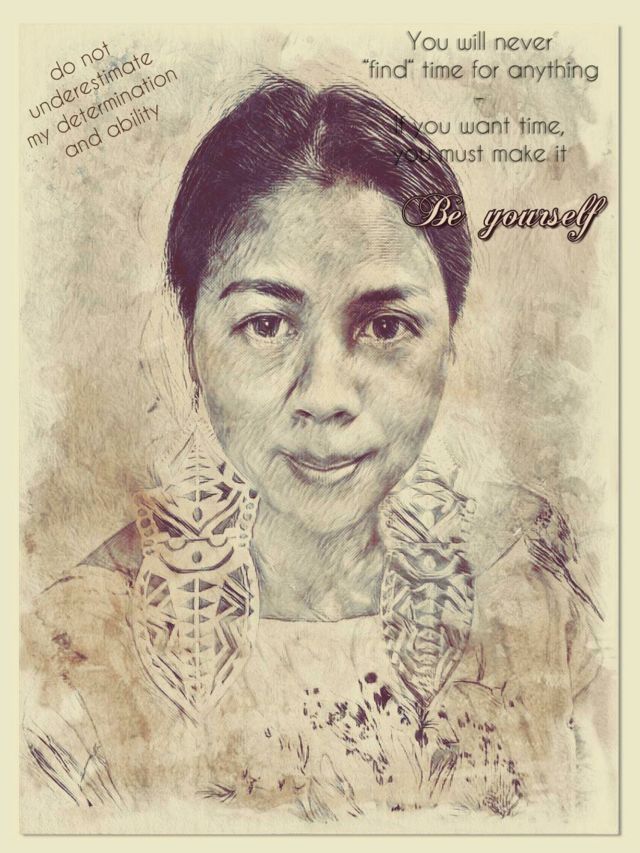 do not
underestimate
my determination
and ability
You will never
"find" time for anything
-
If you want time,
you must make it
Be yourself